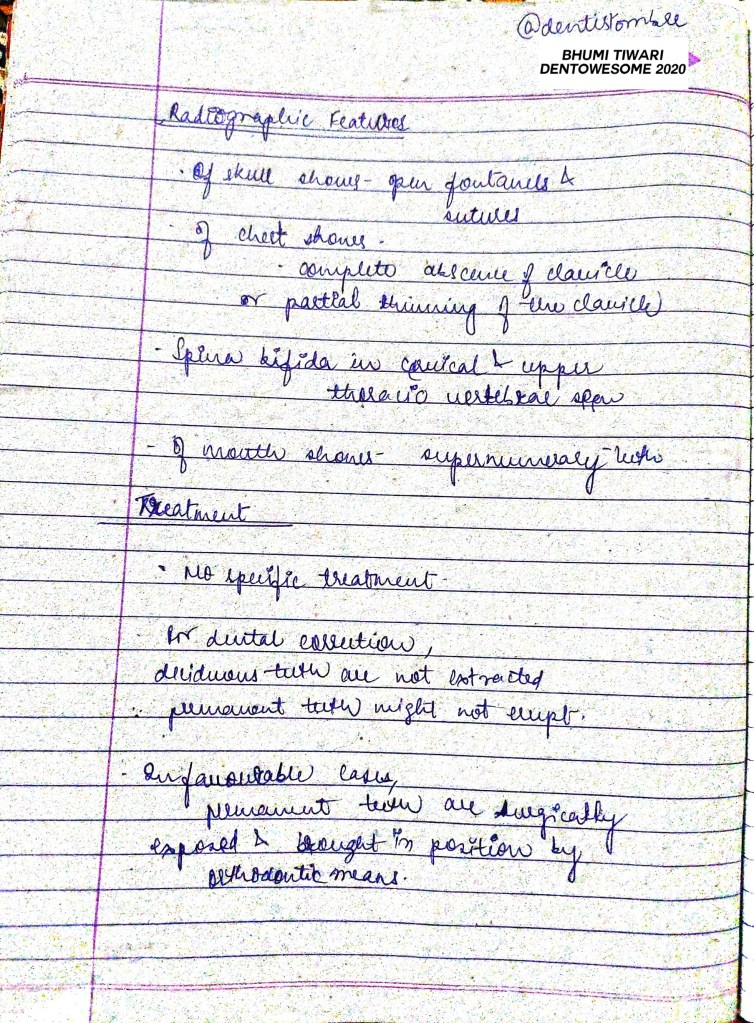 @dentistombre
BHUMI TIWARI
DENTOWESOME 2020
Radiographic Features
· Of skull shows - open fontanels &
sutures
Of chest shows -
- complete abscence of clavicle
or partial thinning of the clavicle
- Spina bifida in cervical & upper
thoracic vertebrae seen
- Of mouth shows - supernumerary teeth
Treatment
· No specific treatment -
For dental correction,
deciduous teeth are not extracted
∴ permanent teeth might not erupt.
- In favourable cases,
permanent teeth are surgically
exposed & brought in position by
orthodontic means.